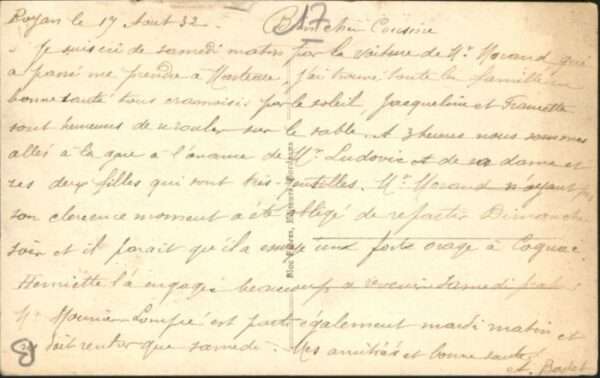 Royan le 17 Août 32.
17
Bien chère Cousine
Je suis ici de samedi matin par la voiture de Mr Morand qui
a passé me prendre à . J'ai trouvé toute la famille en
bonne santé tous cramoisis par le soleil, Jacqueline et Francette
sont heureuses de se rouler sur le sable. A 3 heures nous sommes
allés à la gare à l'avance de Mr Ludovic et de sa dame et
ses deux filles qui sont très gentilles. Mr Morand n'ayant pas
son moment a été obligé de repartir Dimanche
soir et il parait qu'il a essuyé un forts orage à Cognac.
Henriette l'a engagé beaucoup a revenir samedi
Mr Mounier est parti également mardi matin et
ne doit rentrer que samedi. Mes amitiés et bonne santé
A.
Bloc Frères, Bordeaux
8